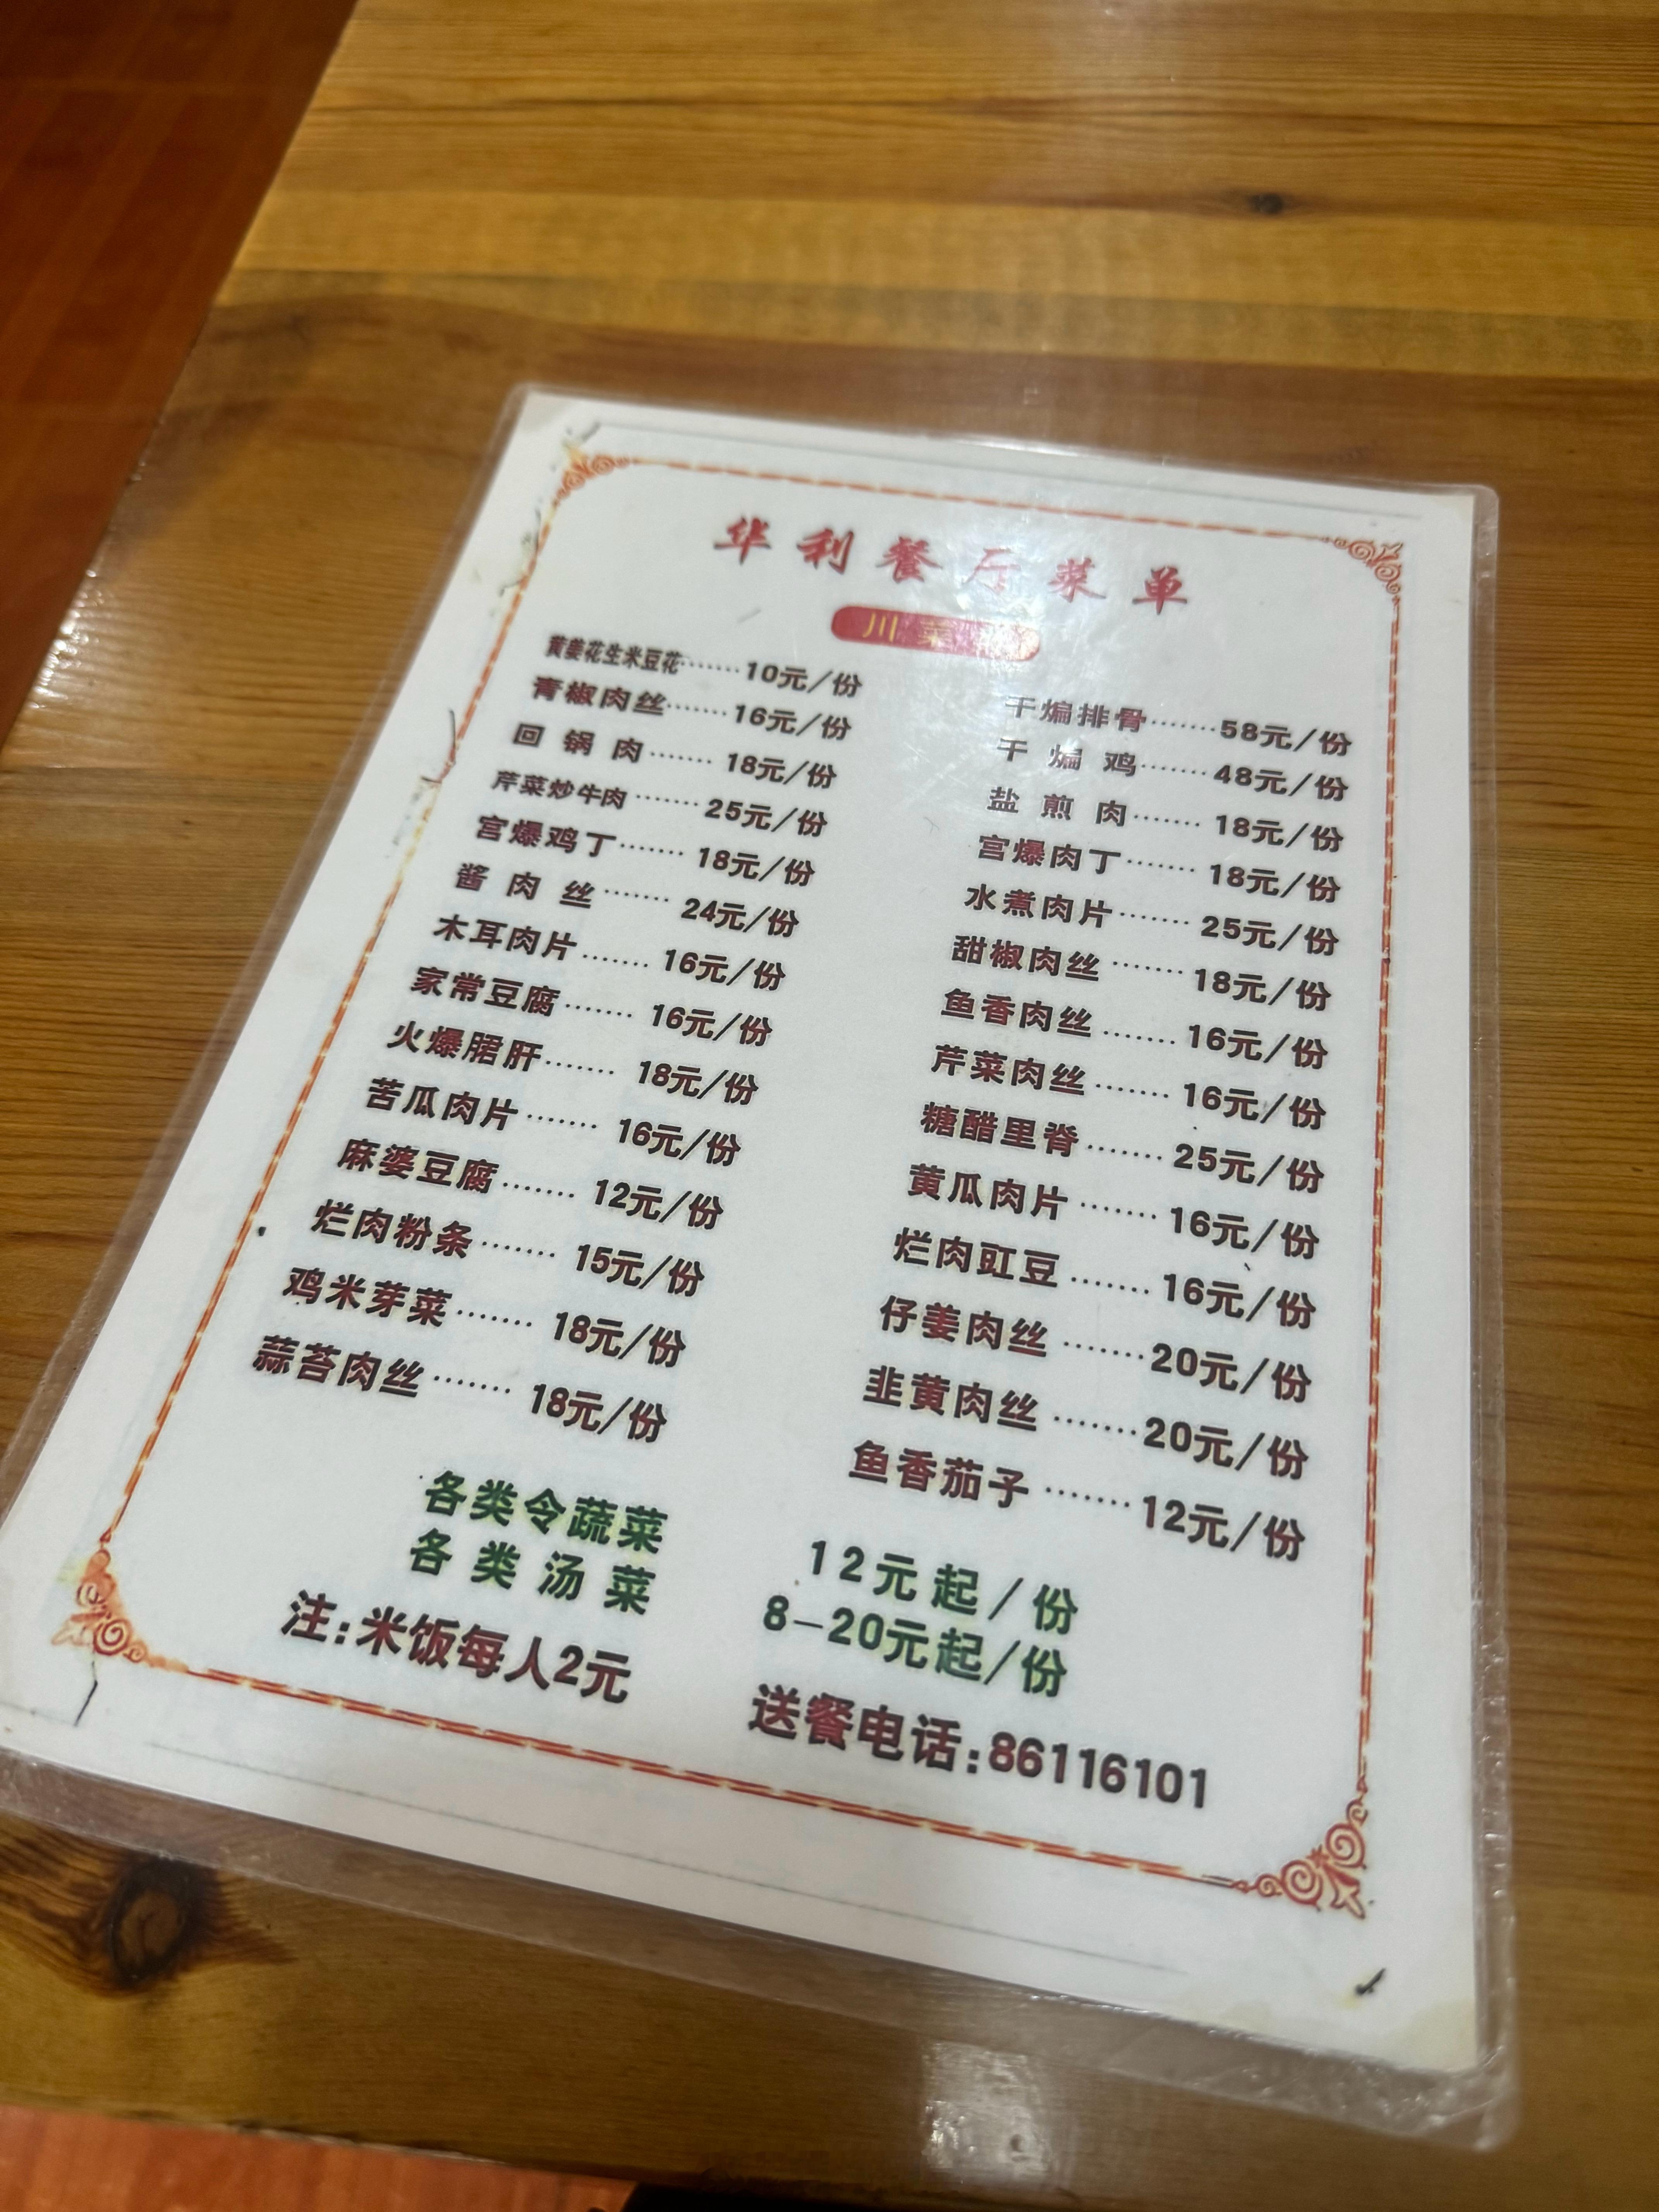 华利餐厅菜单
川菜
黄姜花生米豆花·······10元/份
青椒肉丝·······16元/份
回锅肉·······18元/份
芹菜炒牛肉·······25元/份
宫爆鸡丁·······18元/份
酱肉丝·······24元/份
木耳肉片·······16元/份
家常豆腐·······16元/份
火爆腒肝·······18元/份
苦瓜肉片·······16元/份
麻婆豆腐·······12元/份
烂肉粉条·······15元/份
鸡米芽菜·······18元/份
蒜苔肉丝·······18元/份
干煸排骨·······58元/份
干煸鸡·······48元/份
盐煎肉·······18元/份
宫爆肉丁·······18元/份
水煮肉片·······25元/份
甜椒肉丝·······18元/份
鱼香肉丝·······16元/份
芹菜肉丝·······16元/份
糖醋里脊·······25元/份
黄瓜肉片·······16元/份
烂肉豇豆·······16元/份
仔姜肉丝·······20元/份
韭黄肉丝·······20元/份
鱼香茄子·······12元/份
各类令蔬菜 12元起/份
各类汤菜 8-20元起/份
注:米饭每人2元 送餐电话:86116101